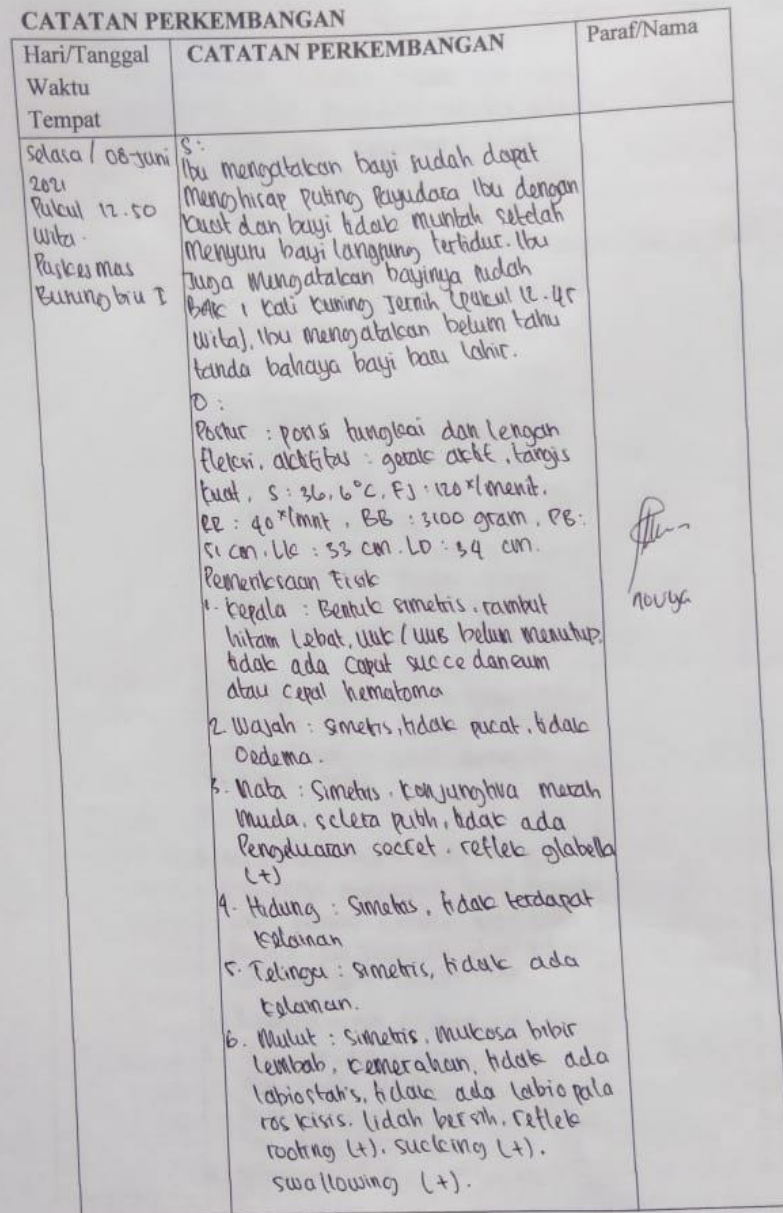 CATATAN PERKEMBANGAN
Hari/Tanggal
Waktu
Tempat
CATATAN PERKEMBANGAN
Paraf/Nama
Selasa / 08-Juni
2021
Pukul 12.50
Wita.
Puskesmas
Busungbiu I
S:
Ibu mengatakan bayi sudah dapat
Menghisap puting payudara Ibu dengan
kuat dan bayi tidak muntah setelah
Menyusu bayi langsung tertidur. Ibu
Juga Mengatakan bayinya sudah
BAK 1 kali kuning Jernih (pukul 12.45
wita), Ibu mengatakan belum tahu
tanda bahaya bayi baru lahir.
O:
Postur : posisi tungkai dan lengan
fleksi, aktifitas : gerak aktif, tangis
kuat, S : 36,6°C, FJ : 120 x/menit.
RR : 40 x/mnt, BB : 3100 gram, PB:
51 cm. LK : 33 cm. LD : 34 cm.
Pemeriksaan Fisik
1. Kepala : Bentuk simetris, rambut
hitam Lebat, UUK / UUB belum menutup,
tidak ada caput succedaneum
atau cepal hematoma
2. Wajah : simetris, tidak pucat, tidak
Oedema.
3. Mata : Simetris, Konjungtiva merah
Muda, sclera putih, tidak ada
Pengeluaran secret. reflek glabella
(+)
4. Hidung : Simetris, tidak terdapat
kelainan
5. Telinga : simetris, tidak ada
kelainan.
6. Mulut : Simetris, mukosa bibir
lembab, kemerahan, tidak ada
labiostatis, tidak ada labio pala
toskisis. lidah bersih. reflek
rooting (+). sucking (+).
swallowing (+).
novya